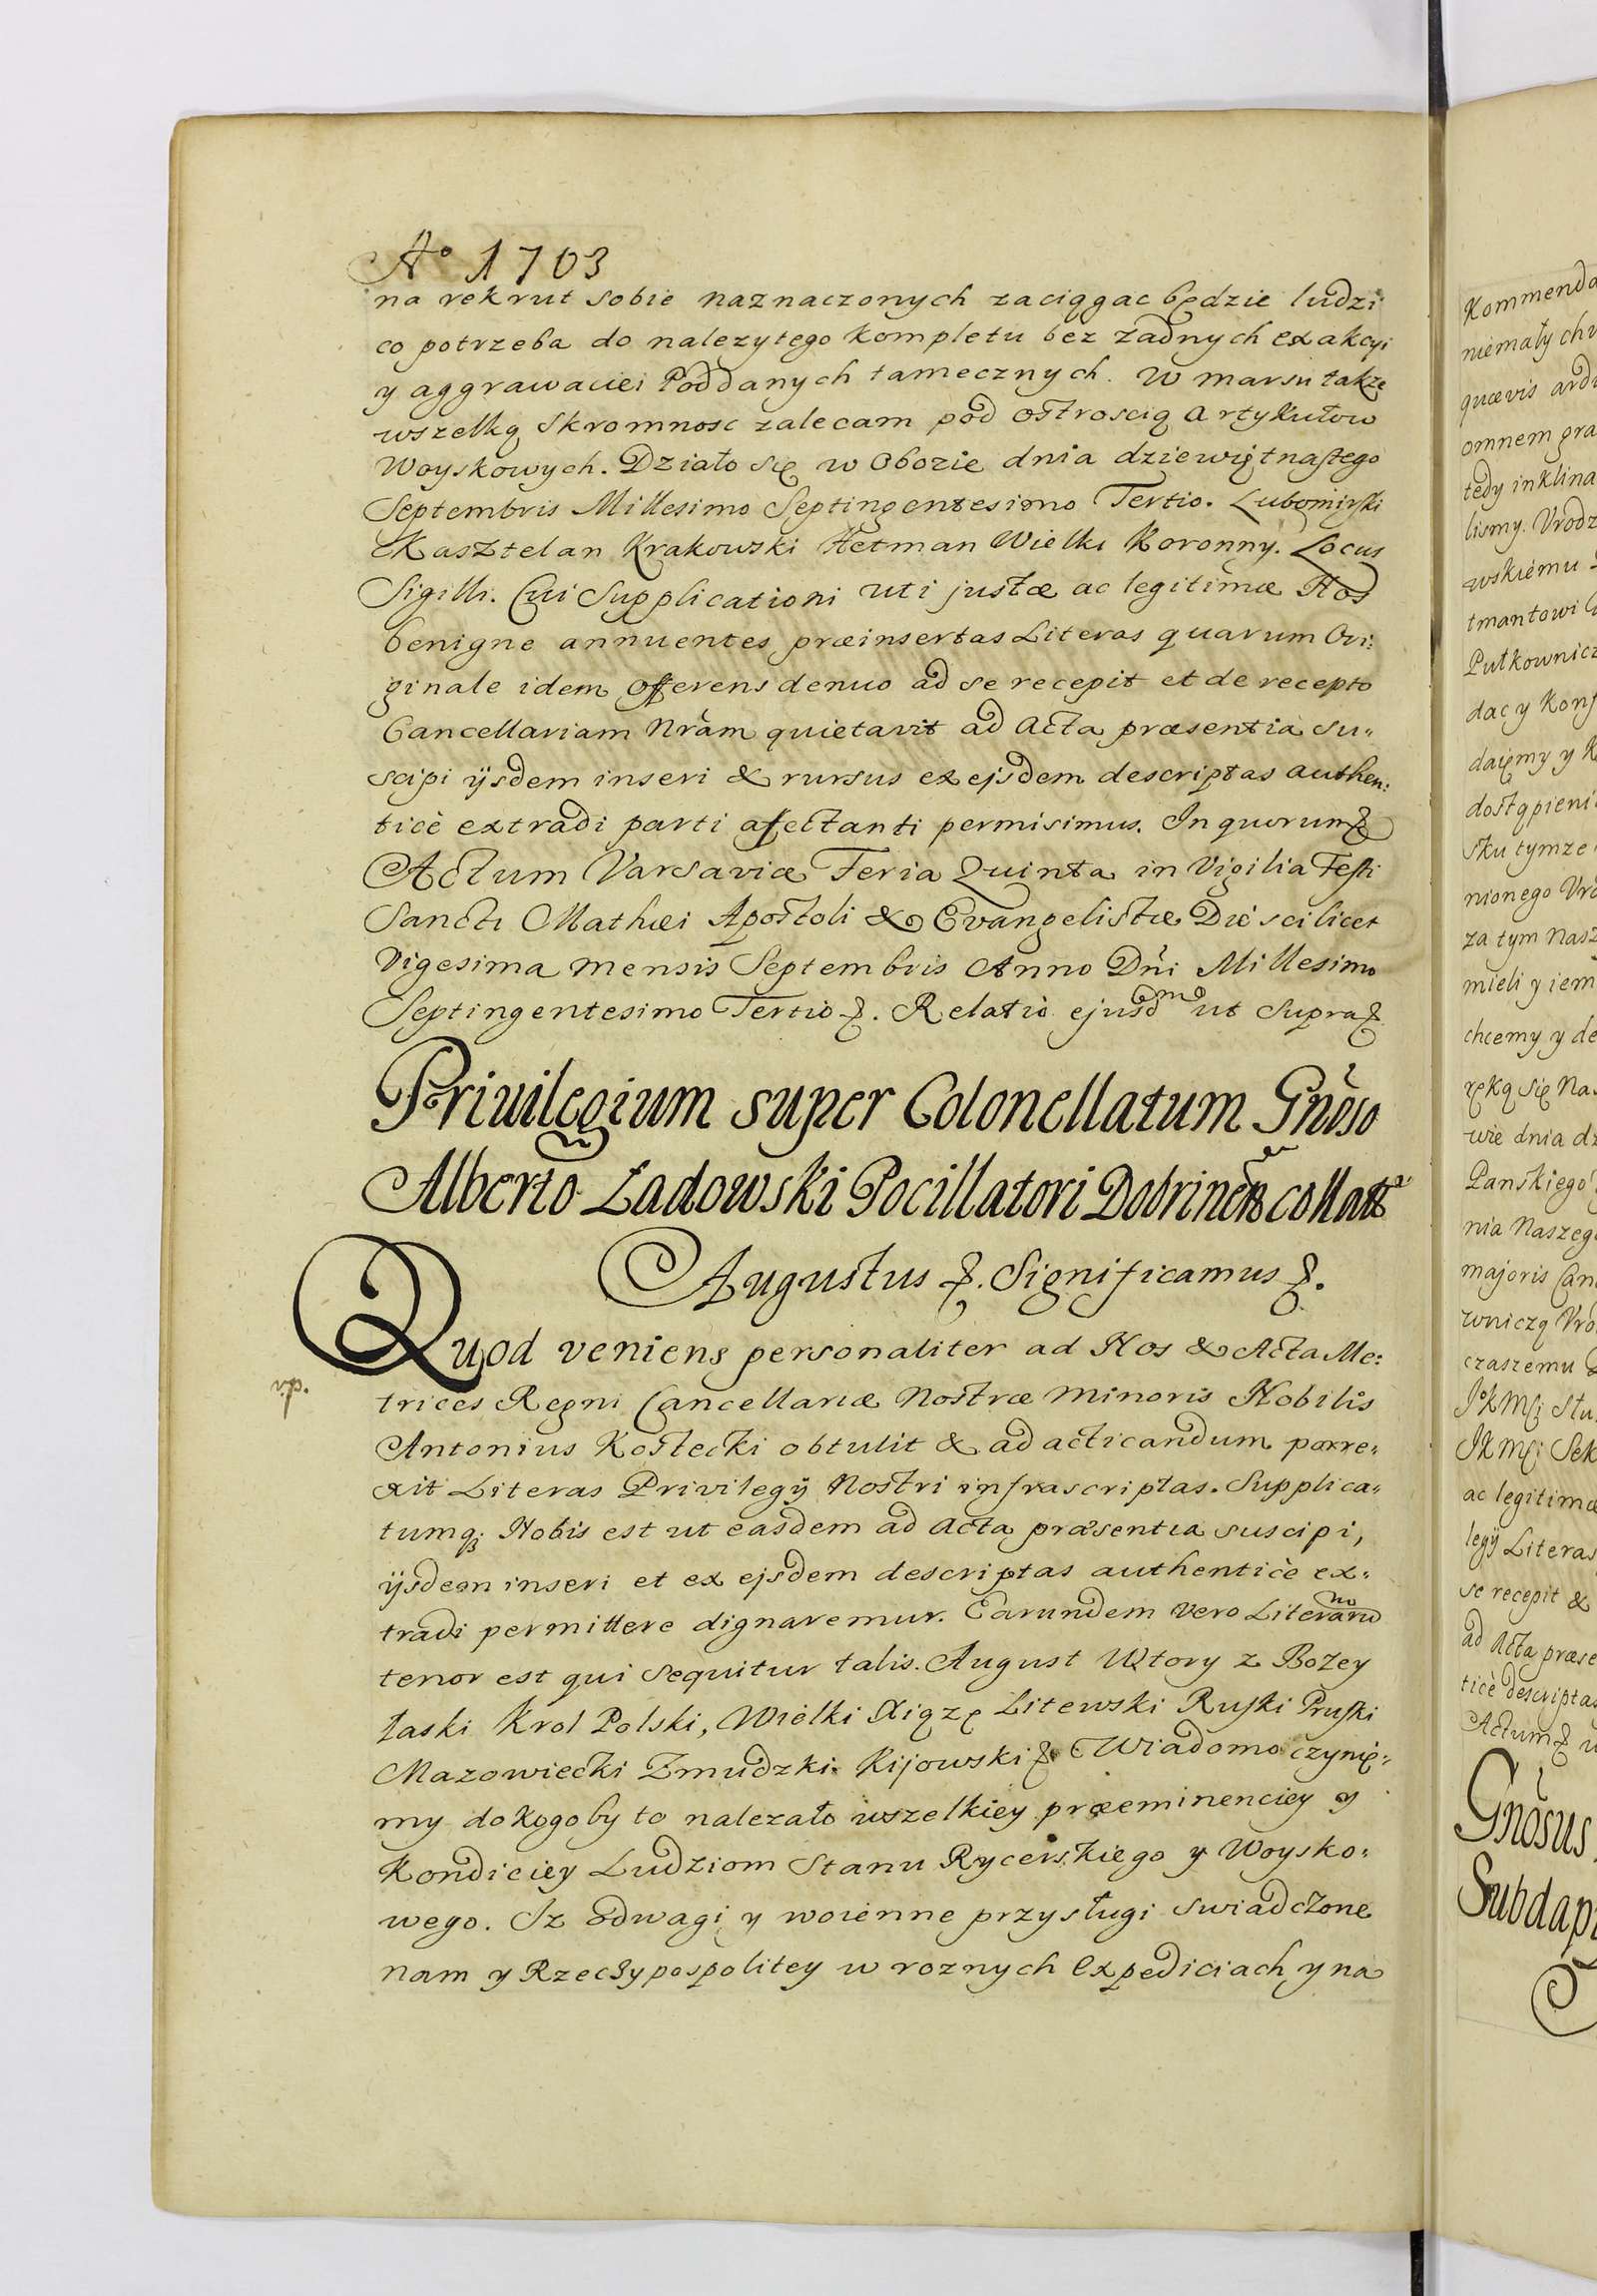 Aº 1703
na rekrut sobie naznaczonych zaciągac będzie ludzi
co potrzeba do nalezytego kompletu bez żadnych exakcyi
y aggrawaciei Poddanych tamecznych. W marsu takze
wszelką skromnosc zalecam pod ostroscią Artykułow
Woyskowych. Działo się w Obozie dnia dziewiętnastego
Septembris Millesimo Septingentesimo Tertio. Lubomirski
Kasztelan Krakowski Hetman Wielki Koronny. Locus
Sigilli. Cui Supplicationi uti justæ ac legitimæ Nos
benigne annuentes præinsertas Literas quarum Ori:
ginale idem Offerens denuo ad se recepit et de recepto
Cancellariam Nram quietavit ad Acta præsentia su„
scipi ijsdem inseri & rursus ex ejsdem descriptas authen:
ticè extradi parti afectanti permisimus. In quorum &
Actum Varsaviæ Feria Quinta in Vigilia Festi
Sancti Mathæi Apostoli & Evangelistæ Die scilicet
Vigesima mensis Septembris Anno Dñi Millesimo
Septingentesimo Tertio &. Relatio ejusdm ut supra &
Privilegium super Colonellatum Gnoso
Alberto Ładowski Pocillatori Dobrinen collatt
Augustus &. Significamus &.
Quod veniens personaliter ad Nos & Acta Me:
v.p.
trices Regni Cancellariæ Nostræ Minoris Nobilis
Antonius Kostecki obtulit & ad acticandum porre„
xit Literas Privilegij Nostri infrascriptas. Supplica„
tumq; Nobis est ut easdem ad Acta præsentia suscipi,
ijsdem inseri et ex ejsdem descriptas authenticè ex„
tradi permittere dignaremur. Earundem vero Literarum
tenor est qui sequitur talis. August Wtory z Bożey
łaski Krol Polski, Wielki Xiążę Litewski Ruski Pruski
Mazowiecki Zmudzki Kijowski &. Wiadomo czynię„
my dokogoby to nalezało wszelkiey præeminenciey y
Kondiciey Ludziom Stanu Rycerskiego y Woysko„
wego. Iz odwagi y woienne przysługi swiadczone
nam y Rzeczypospolitey w roznych Expediciach y na
Kommenda
niemały chw
quævis ardu
omnem gra
tedy inklina
lismy. Vrodz
wskiemu
tmantowi
Pułkownicz
dac y Konf
daięmy y K
dostąpieni
sku tymze
nionego Vro
za tym Nasz
mieli y iem
chcemy y de
ręką się Na
wie dnia dz
Panskiego
nia Naszego
majoris Can
wniczą Vro
czaszemu
JKMci Stu
JKMci Sek
ac legitimæ
legij Literas
se recepit &
ad Acta præse
ticè descriptas
Actum & u
Gnosus
Subdap